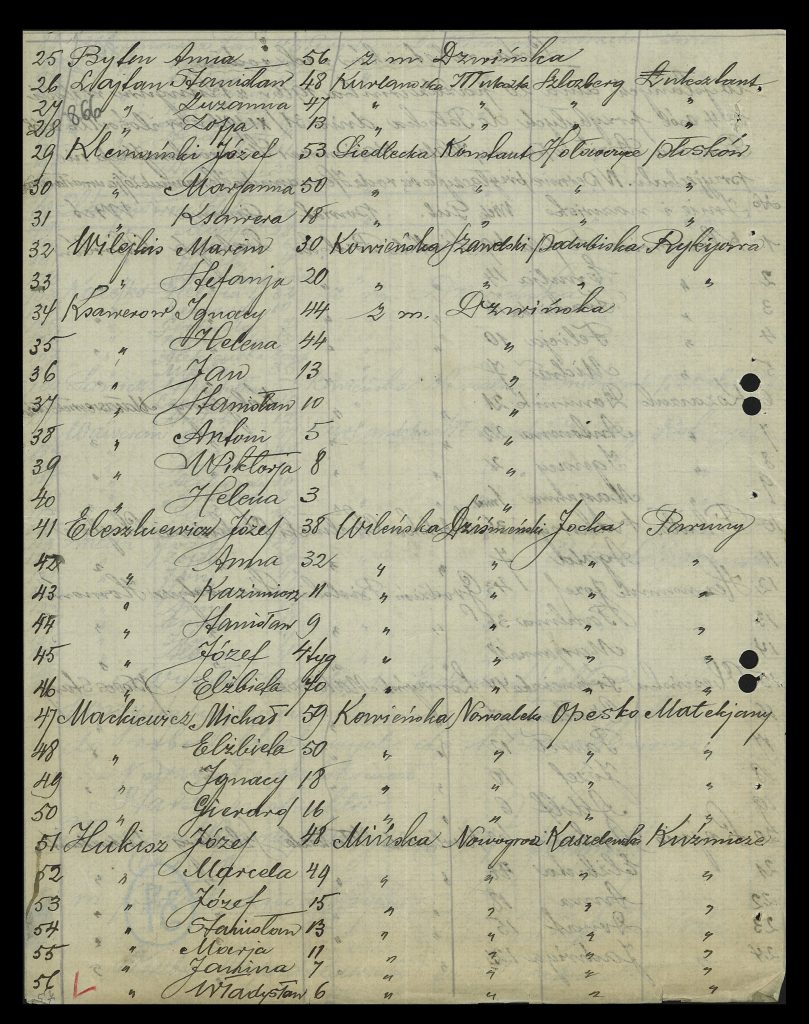 25 Byten Anna 56 z m. Dzwińska
26 Lajtan Stanisław 48 Kurlandska Illukszta Szlozberg
866
27 " Zuzanna 47 " " " "
28 " Zofja 13 " " " "
29 Klemuński Józef 53 Siedlecka Konstant Hołowczyce Płosków
30 " Marjanna 50 " " " "
31 " Ksawera 18 " " " "
32 Wilejkis Marcin 30 Kowieńska Szawelski Padubiska Rykijowia
33 " Stefanja 20 " " " "
34 Ksawerow Ignacy 44 z m. Dzwińska
35 " Helena 44 "
36 " Jan 13 "
37 " Stanisław 10 "
38 " Antoni 5 "
39 " Wiktorja 8 "
40 " Helena 3 "
41 Eleszkiewicz Józef 38 Wileńska Dzisnieński Jocka Paruny
42 " Anna 32 " " " "
43 " Kazimierz 11 " " " "
44 " Stanisław 9 " " " "
45 " Józef 4 tyg " " " "
46 " Elżbieta 70 " " " "
47 Mackiewicz Michał 59 Kowieńska Nowoaleks Opesko Matekjany
48 " Elżbieta 50 " " " "
49 " Ignacy 18 " " " "
50 " Gierard 16 " " " "
51 Hukisz Józef 48 Mińska Nowogrodz Kuźmicze
52 " Marcela 49 " " " "
53 " Józef 15 " " " "
54 " Stanisław 13 " " " "
55 " Marja 11 " " " "
" Janina 7 " " " "
56 " Władysław 6 " " " "